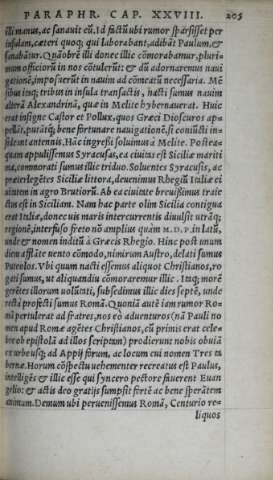 PARAPHR. CAP. XXVIII. 205
illi manus, ac sanauit eū. Id factū ubi rumor sparsisset per
insulam, cæteri quoq; qui laborabant, adibāt Paulum, &
sanabātur. Quāobrē illi donec illic cōmorabamur, pluri-
mum officiorū in nos cōtulerūt: & dū adornaremus naui
gationē, imposuerūt in nauim ad cōmeatū necessaria. Mē
sibus itaq; tribus in insula transactis, nacti sumus nauim
alterā Alexandrinā, quæ in Melite hybernauerat. Huic
erat insigne Castor et Pollux, quos Græci Dioscuros ap-
pellāt, putātq; bene fortunare nauigationē, si coniūcti in-
siderint antennis. Hāc ingressi soluimus à Melite. Postea-
quam appulissemus Syracusas, ea ciuitas est Siciliæ mariti
ma, commorati sumus illic triduo. Soluentes Syracusis, ac
præterlegētes Siciliæ littora, deuenimus Rhegiū Italiæ ci
uitatem in agro Brutiorū. Ab ea ciuitate breuissimus traie
ctus est in Siciliam. Nam hac parte olim Sicilia contigua
erat Italiæ, donec uis maris intercurrentis diuulsit utrāq;
regionē, interfuso freto nō amplius quàm M. D. P. in latū,
unde & nomen inditū à Græcis Rhegio. Hinc post unum
diem afflāte uento cōmodo, nimirum Austro, delati sumus
Puteolos. Vbi quum nacti essemus aliquot Christianos, ro
gati sumus, ut aliquandiu cōmoraremur illic. Itaq; morē
gerētes illorum uolūtati, subsedimus illic dies septē, unde
recta profecti sumus Romā. Quoniā autē iam rumor Ro-
mā pertulerat ad fratres, nos eò aduenturos (nā Pauli no
men apud Romæ agētes Christianos, cū primis erat cele-
bre ob epistolā ad illos scriptam) prodierunt nobis obuiā
ex urbe usq; ad Appij forum, ac locum cui nomen Tres ta
bernæ. Horum cōspectu uehementer recreatus est Paulus,
intelligēs & illic esse qui syncero pectore fauerent Euan
gelio: & actis deo gratijs sumpsit fortē ac bene sperātem
animum. Demum ubi peruenissemus Romā, Centurio re-
liquos